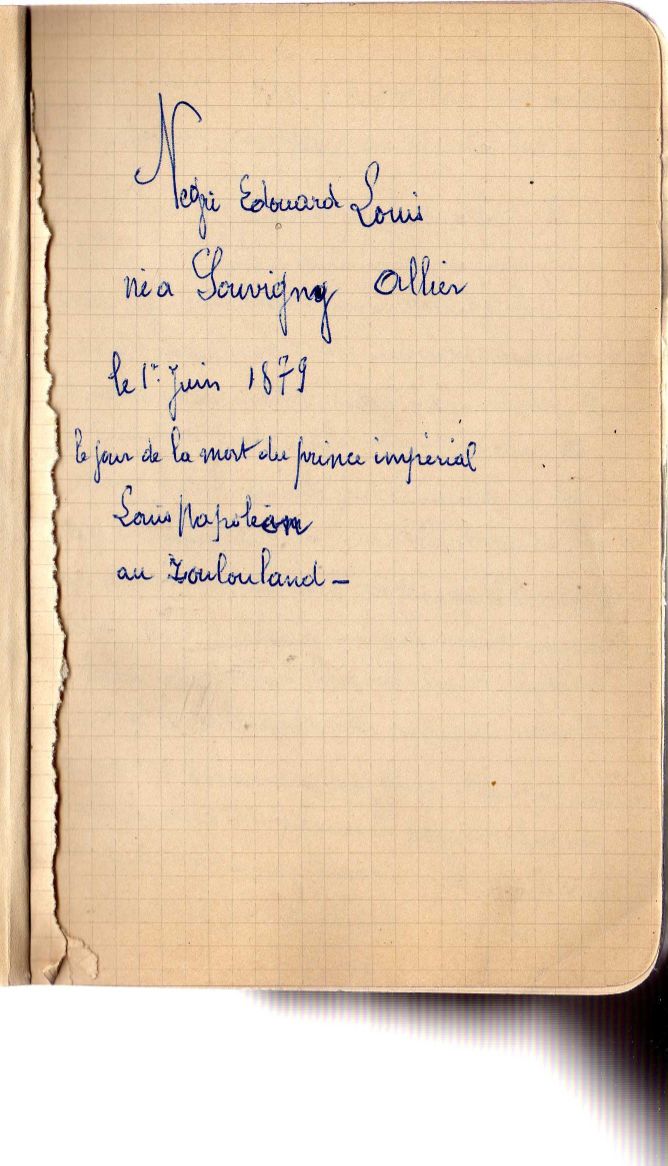 Negri Edouard Louis
né a Souvigny Allier
le 1er Juin 1879
le jour de la mort du prince impérial
Louis Napoléon
au Zoulouland –